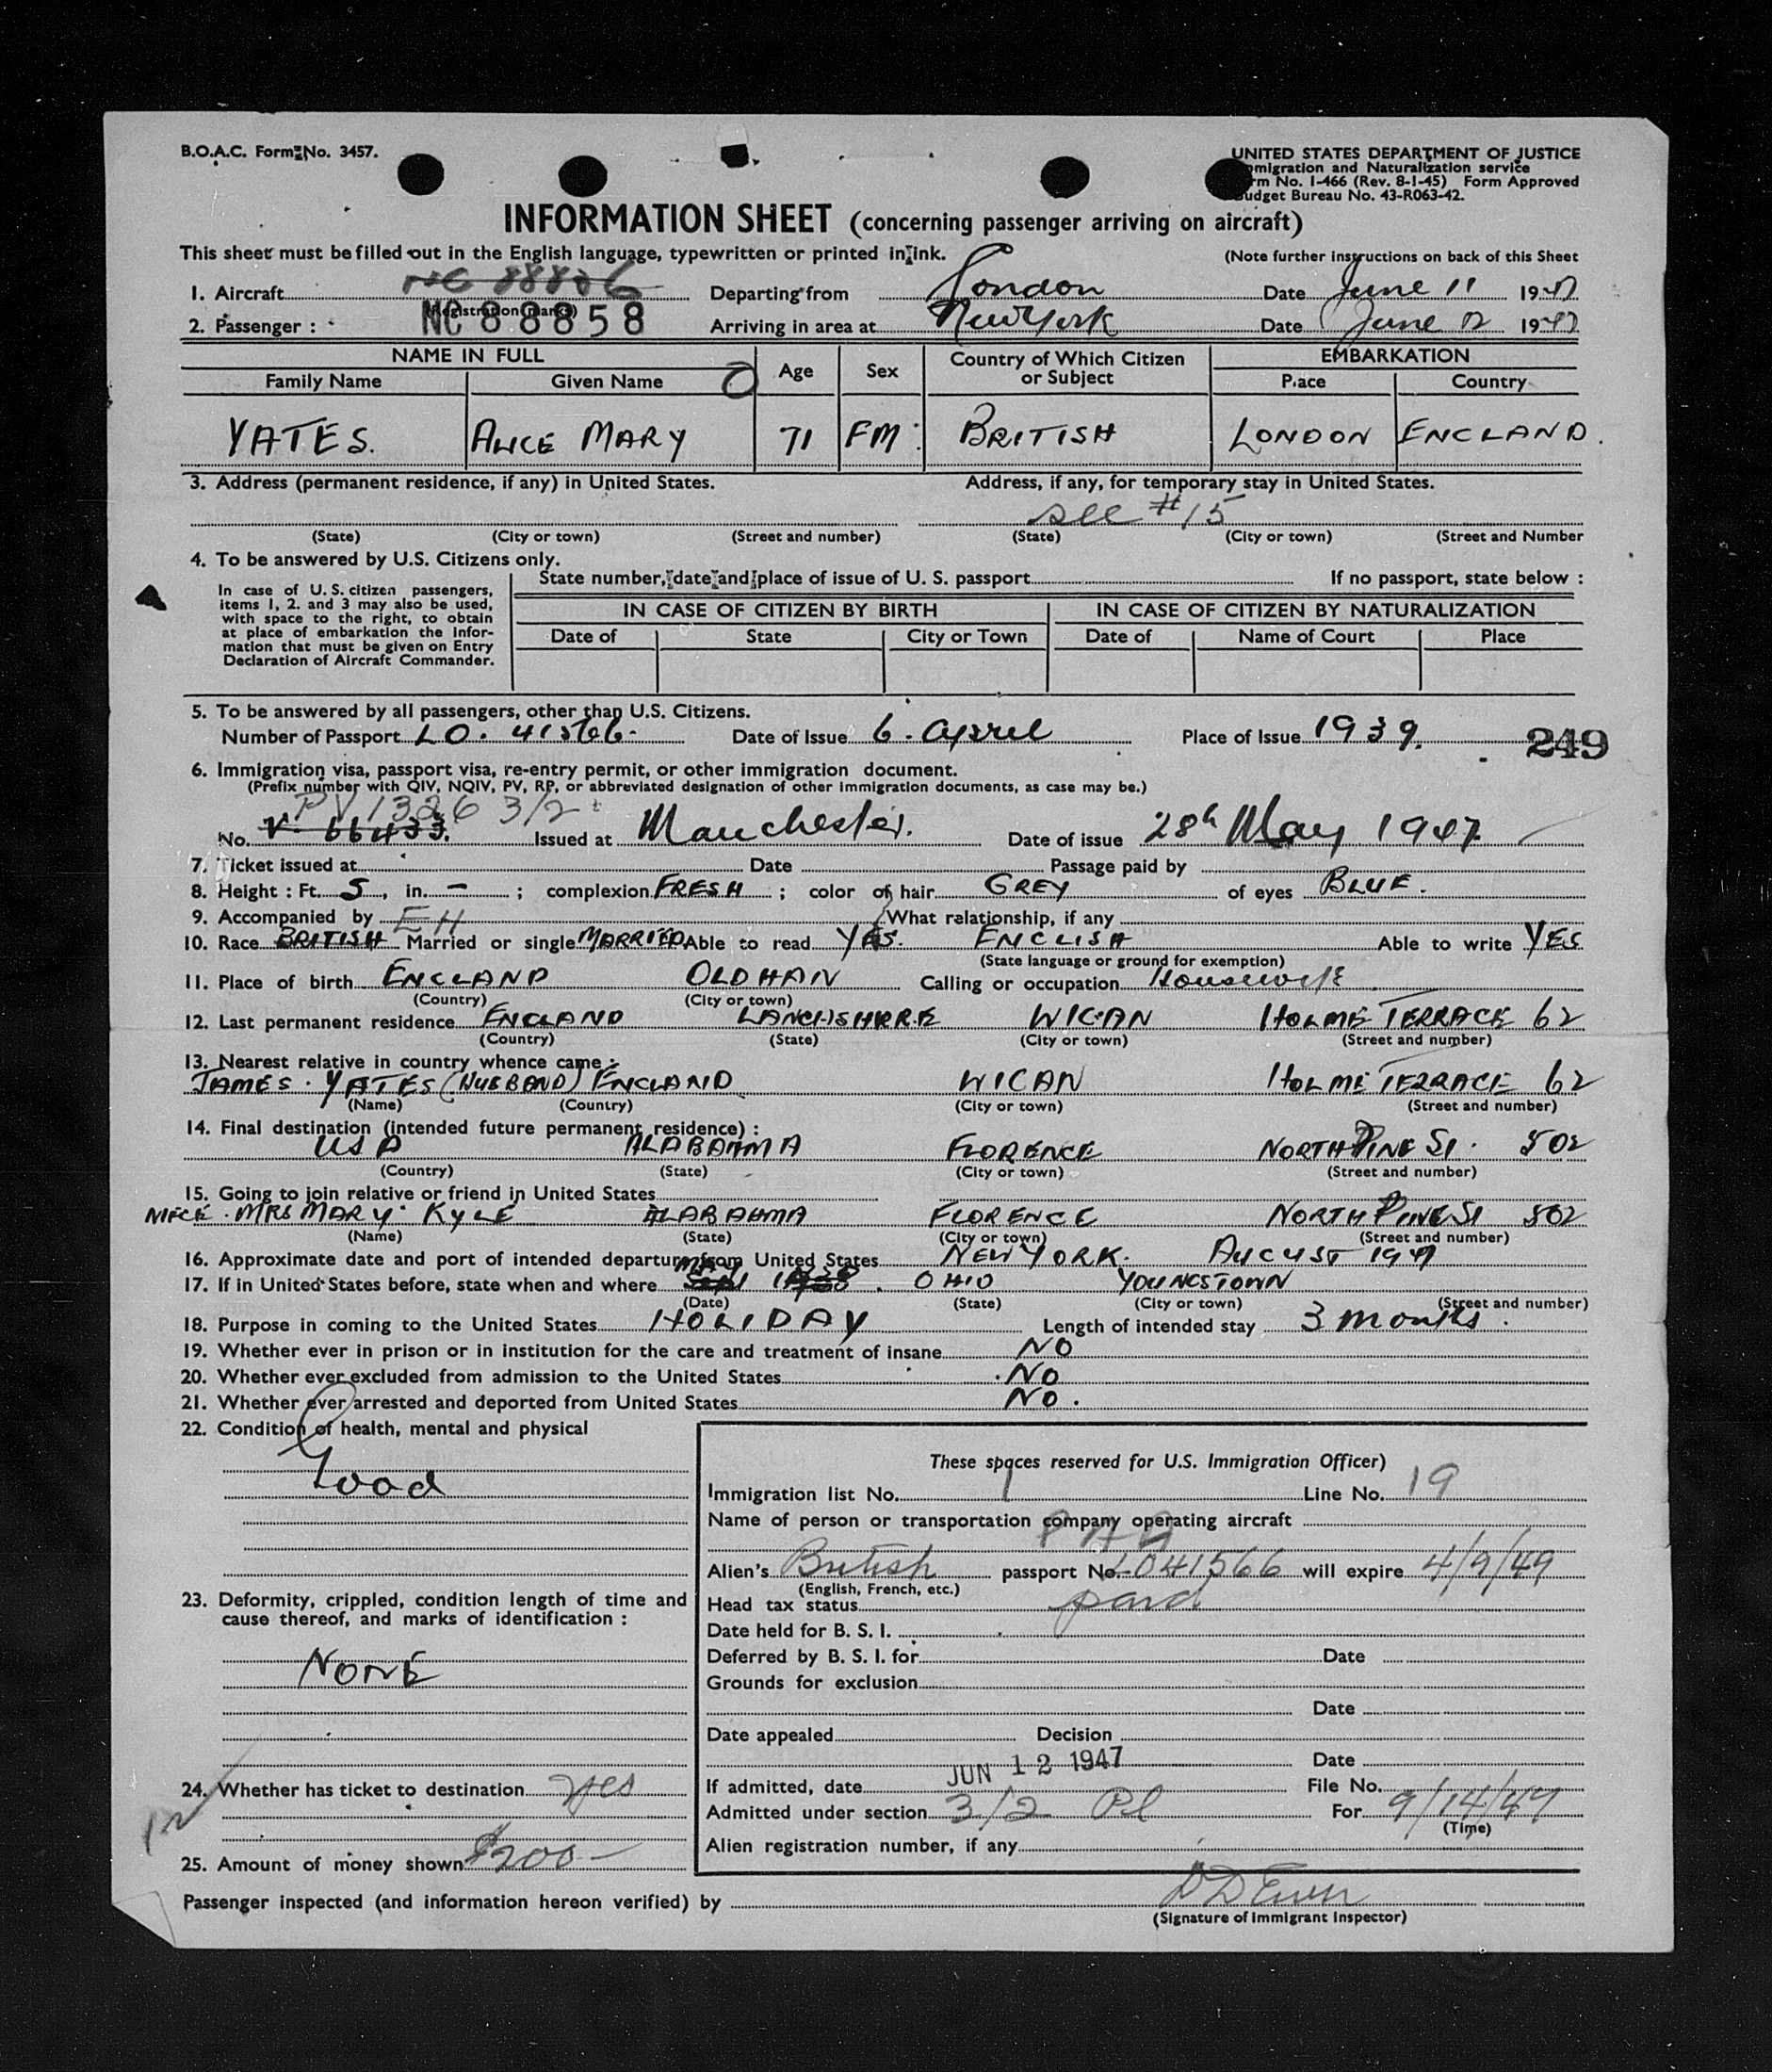 B.O.A.C. Form No. 3457.
UNITED STATES DEPARTMENT OF JUSTICE
migration and Naturalization service
rm No. I-466 (Rev. 8-1-45) Form Approved
udget Bureau No. 43-R063-42.
INFORMATION SHEET (concerning passenger arriving on aircraft)
This sheet must be filled out in the English language, typewritten or printed in ink. (Note further instructions on back of this Sheet
1. Aircraft Departing from London Date June 11 1947
(Registration marks)
NC 88858
2. Passenger : Arriving in area at New York Date June 12 1947
NAME IN FULL Age Sex Country of Which Citizen or Subject EMBARKATION
Family Name Given Name Place Country
YATES. ALICE MARY 71 FM. BRITISH LONDON ENGLAND.
3. Address (permanent residence, if any) in United States. Address, if any, for temporary stay in United States.
see #15
(State) (City or town) (Street and number) (State) (City or town) (Street and Number
4. To be answered by U.S. Citizens only.
In case of U.S. citizen passengers, items 1, 2. and 3 may also be used, with space to the right, to obtain at place of embarkation the information that must be given on Entry Declaration of Aircraft Commander.
State number, date and place of issue of U. S. passport If no passport, state below :
IN CASE OF CITIZEN BY BIRTH IN CASE OF CITIZEN BY NATURALIZATION
Date of State City or Town Date of Name of Court Place
5. To be answered by all passengers, other than U.S. Citizens.
Number of Passport LO. 41566. Date of Issue 6. April Place of Issue 1939.
249
6. Immigration visa, passport visa, re-entry permit, or other immigration document.
(Prefix number with QIV, NQIV, PV, RP, or abbreviated designation of other immigration documents, as case may be.)
PV 1326 3/2
No. V. 66433. Issued at Manchester. Date of issue 28th May 1947
7. Ticket issued at Date Passage paid by
8. Height : Ft. 5, in. - ; complexion FRESH ; color of hair GREY of eyes BLUE.
9. Accompanied by What relationship, if any
EH
10. Race BRITISH Married or single MARRIED Able to read YES. ENGLISH Able to write YES
(State language or ground for exemption)
11. Place of birth ENGLAND OLDHAM Calling or occupation Housewife
(Country) (City or town)
12. Last permanent residence ENGLAND LANCHSHIRRE WIGAN HOLME TERRACE 62
(Country) (State) (City or town) (Street and number)
13. Nearest relative in country whence came :
JAMES. YATES (HUSBAND) ENGLAND WIGAN HOLME TERRACE 62
(Name) (Country) (City or town) (Street and number)
14. Final destination (intended future permanent residence) :
USA ALABAHMA FLORENCE NORTH PINE ST. 502
(Country) (State) (City or town) (Street and number)
15. Going to join relative or friend in United States
NIECE. MRS MARY KYLE ALABAHMA FLORENCE NORTH PINE ST 502
(Name) (State) (City or town) (Street and number)
16. Approximate date and port of intended departure from United States NEW YORK. AUGUST 1947
17. If in United States before, state when and where OHIO YOUNGSTOWN
(Date) (State) (City or town) (Street and number)
18. Purpose in coming to the United States HOLIDAY Length of intended stay 3 months.
19. Whether ever in prison or in institution for the care and treatment of insane NO
20. Whether ever excluded from admission to the United States NO
21. Whether ever arrested and deported from United States NO.
22. Condition of health, mental and physical
Good
23. Deformity, crippled, condition length of time and cause thereof, and marks of identification :
NONE
24. Whether has ticket to destination yes
25. Amount of money shown $200-
These spaces reserved for U.S. Immigration Officer)
Immigration list No. 1 Line No. 19
Name of person or transportation company operating aircraft
PAA
Alien's British passport No. LO41566 will expire 4/9/49
(English, French, etc.)
Head tax status paid
Date held for B. S. I.
Deferred by B. S. I. for Date
Grounds for exclusion
Date
Date appealed Decision
Date
If admitted, date JUN 12 1947 File No.
Admitted under section 3/2 For 9/14/47
(Time)
Alien registration number, if any
Passenger inspected (and information hereon verified) by
(Signature of Immigrant Inspector)